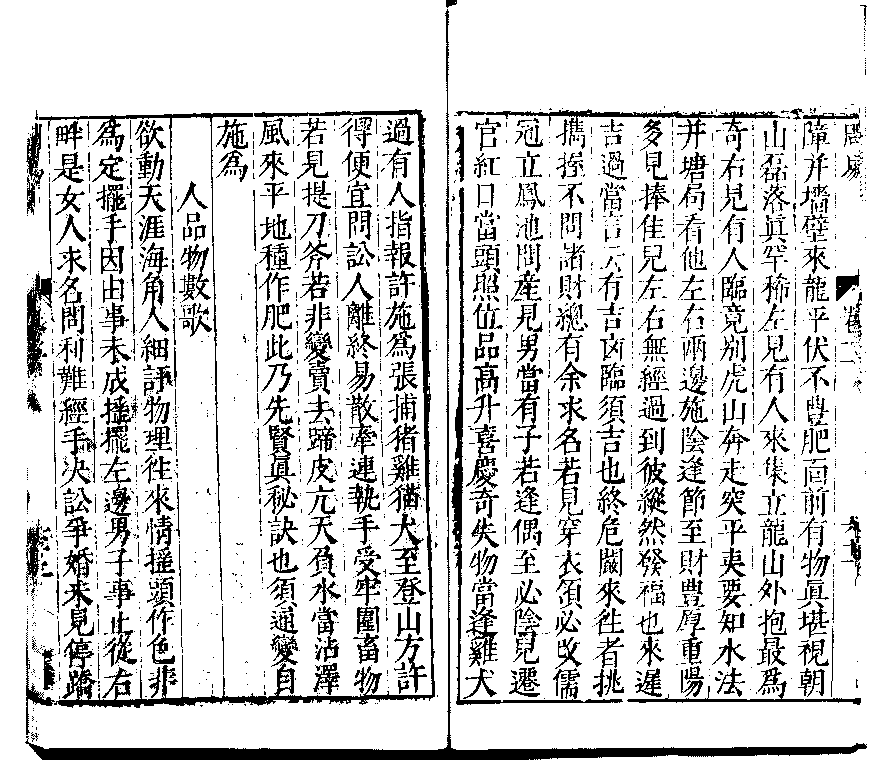 障并墻壁來龍平伏不豊肥面前有物眞堪視朝
山磊落眞罕稀左見有人來集立龍山外抱最爲
奇右見有人臨竟别虎山奔走突平夷要知水法
并塘局看他左右兩邊施陰逢節至財豊厚重陽
多見捧隹兒左右無經過到彼縱然發福也來遲
吉過當言六有吉凶臨須吉也終危闗來徃者挑
擕 不問諸財總有余求名若見穿衣領必改儒
冠立鳳池問産見男當有子若逢偶至必陰見遷
官紅日當頭照位品高升喜慶奇失物當逢雞犬
過有人指報許施爲張捕猪雞猶犬至登山方許
得便宜問訟人離終易散牽連執手受牢圍畜物
若見提刀斧若非變賣去蹄皮亢天負水當沾澤
風來平地種作肥此乃先賢眞秘訣也須通變自
施爲
人品物數歌
欲動天涯海角人細評物理徃來情揺頭作色非
爲定擺手因由事未成揺擺左邊男子事止從右
畔是女人求名問利難經手决訟爭婚未見停蹻
卷二